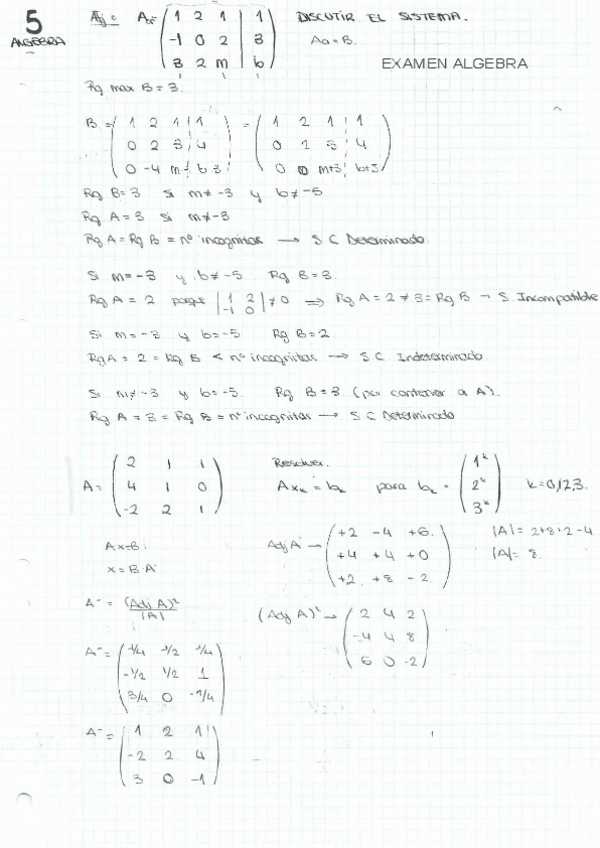 5
ALGEBRA
Ej: A* = ( 1 2 1 | 1 ) DISCUTIR EL SISTEMA.
( -1 0 2 | 3 )
( 3 2 m | b )
EXAMEN ALGEBRA
Rg max B = 3.
B = ( 1 2 1 | 1 ) = ( 1 2 1 | 1 )
( 0 2 3 | 4 ) ( 0 2 3 | 4 )
( 0 -4 m-3 | b-3 ) ( 0 0 m+3 | b+5 )
Rg B = 3 si m ≠ -3 y b ≠ -5
Rg A = 3 si m ≠ -3
Rg A = Rg B = nº incognitas → S.C. Determinado.
Si m = -3 y b ≠ -5 Rg B = 3.
Rg A = 2 porque | 1 2 | ≠ 0 ⇒ Rg A = 2 ≠ 3 = Rg B → S. Incompatible
| -1 0 |
Si m = -3 y b = -5 Rg B = 2
Rg A = 2 = Rg B < nº incognitas → S.C. Indeterminado
Si m ≠ -3 y b = -5. Rg B = 3 (por contener a A).
Rg A = 3 = Rg B = nº incognitas → S.C Determinado
Resolver.
A = ( 2 1 1 ) A x_k = b_k para b_k = ( 1^k ) k = 0,1,2,3.
( 4 1 0 ) ( 2^k )
( -2 2 1 ) ( 3^k )
Ax = B Adj A → ( +2 -4 +6 ) |A| = 2+8+2-4
x = B·A ( +4 +4 +0 ) |A| = 8
( +2 +8 -2 )
A⁻ = (Adj A)ᵗ / |A| (Adj A)ᵗ → ( 2 4 2 )
( -4 4 8 )
( 6 0 -2 )
A⁻ = ( 1/4 1/2 1/4 )
( -1/2 1/2 1 )
( 3/4 0 -1/4 )
A⁻ = ( 1 2 1 )
( -2 2 4 )
( 3 0 -1 )